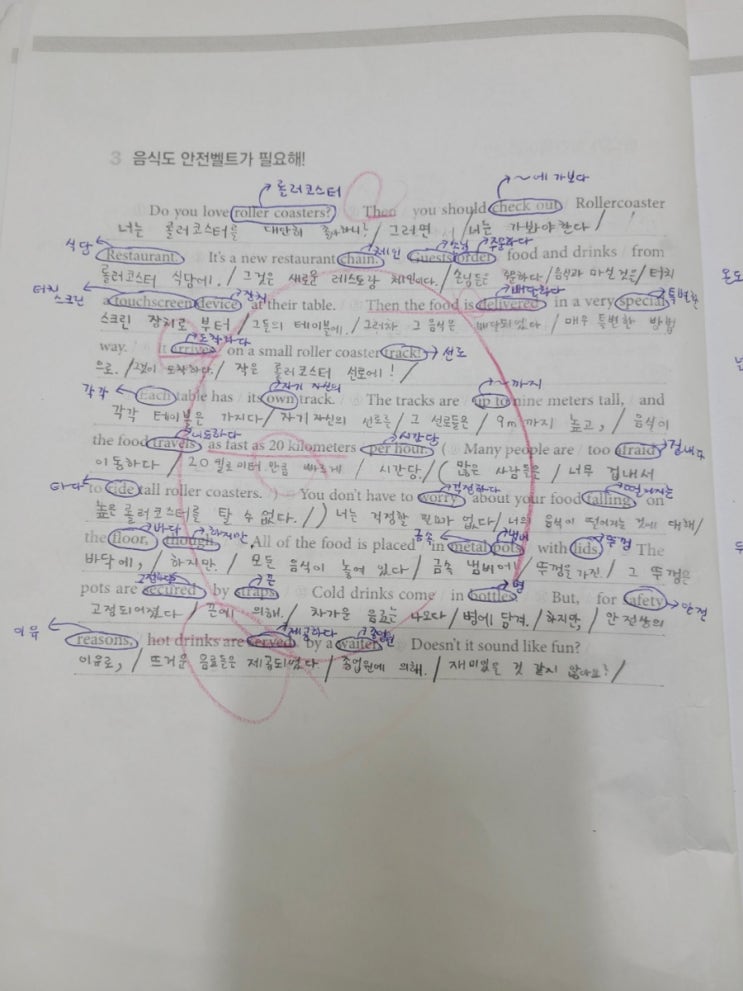 3 음식도 안전벨트가 필요해!
롤러코스터 ~에 가보다
Do you love roller coasters? Then you should check out Rollercoaster
너는 롤러코스터를 대단히 좋아하니? / 그러면 / 너는 가봐야 한다 /
식당 체인 손님 주문하다
Restaurant. It's a new restaurant chain. Guests order food and drinks from
롤러코스터 식당에. / 그것은 새로운 레스토랑 체인이다. / 손님들은 / 음식과 마실 것을 / 터치
터치 스크린 장치 배달하다 특별한
a touchscreen device at their table. Then the food is delivered in a very special
스크린 장치로 부터 / 그들의 테이블에. / 그러자 그 음식은 배달되었다 / 매우 특별한 방법
도착하다 선로
way. It arrives on a small roller coaster track!
으로. / 그것이 도착하다. / 작은 롤러코스터 선로에! /
각각 자기 자신의 ~까지
Each table has its own track. The tracks are up to nine meters tall, and
각각 테이블은 가지다 / 자기 자신의 선로를 / 그 선로들은 / 9m까지 높고, / 음식이
이동하다 시간당 겁내다
the food travels as fast as 20 kilometers per hour. ( Many people are too afraid
이동하다 / 20 킬로미터 만큼 빠르게 / 시간당. / ( 많은 사람들은 / 너무 겁내서
타다 걱정하다 떨어지는
to ride tall roller coasters. ) You don't have to worry about your food falling on
높은 롤러코스터를 탈 수 없다. / ) 너는 걱정할 필요가 없다 / 너의 음식이 떨어지는 것에 대해 /
바닥 하지만 금속 냄비 뚜껑
the floor, though. All of the food is placed in metal pots with lids. The
바닥에, / 하지만. / 모든 음식이 놓여 있다 / 금속 냄비에 / 뚜껑을 가진 / 그 뚜껑은
끈 병
pots are secured by straps. Cold drinks come in bottles. But, for safety
안전
고정되어졌다 / 끈에 의해. / 차가운 음료는 나오다 / 병에 담겨. / 하지만, / 안전상의
이유 제공하다 종업원
reasons, hot drinks are served by a waiter. Doesn't it sound like fun?
이유로, / 뜨거운 음료들은 제공되었다 / 종업원에 의해. / 재미있을 것 같지 않나요? /